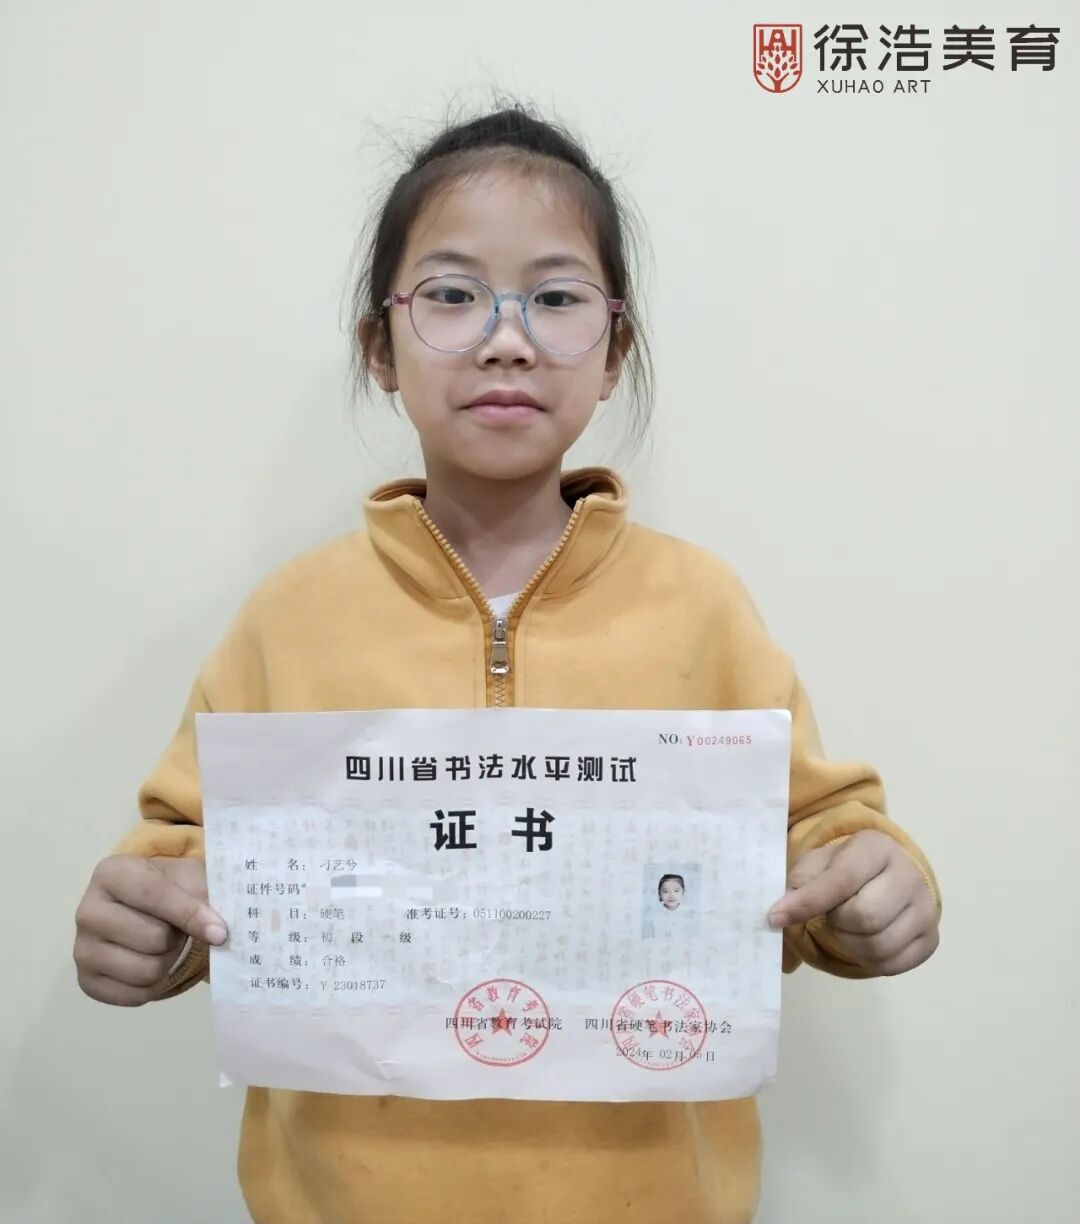 徐浩美育
XUHAO ART
NO: Y00249065
四川省书法水平测试
证书
姓 名: 刁艺兮
证件号码
科 目: 硬笔 准考证号: 051100200227
等 级: 初 段 一 级
成 绩: 合格
证书编号: Y 23018737
四川省教育考试院 四川省硬笔书法家协会
2024年 02月 05日